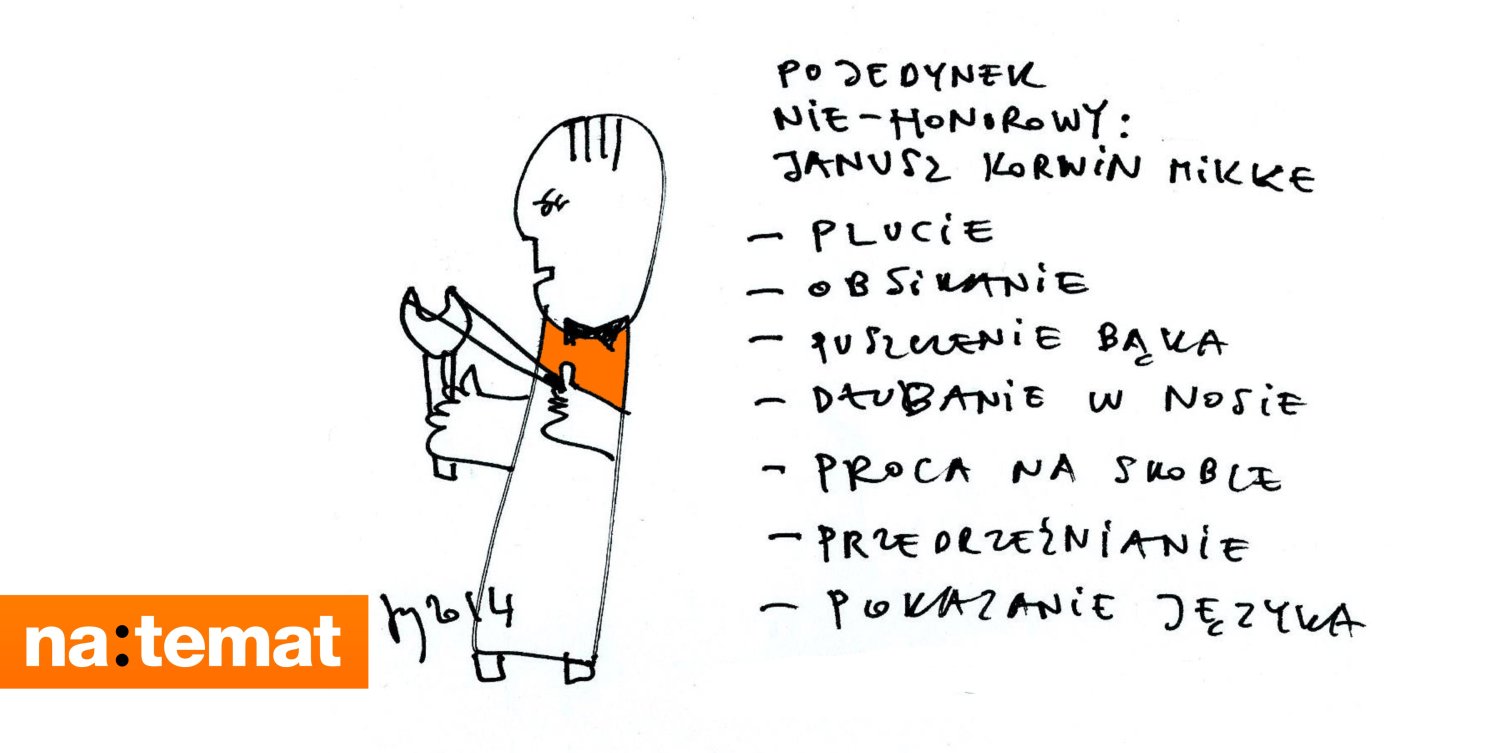 POJEDYNEK
NIE-HONOROWY:
JANUSZ KORWIN MIKKE
- PLUCIE
- OBSIKANIE
- PUSZCZENIE BĄKA
- DŁUBANIE W NOSIE
- PROCA NA SKOBLE
- PRZEDRZEŹNIANIE
- POKAZANIE JĘZYKA
2014
na:temat